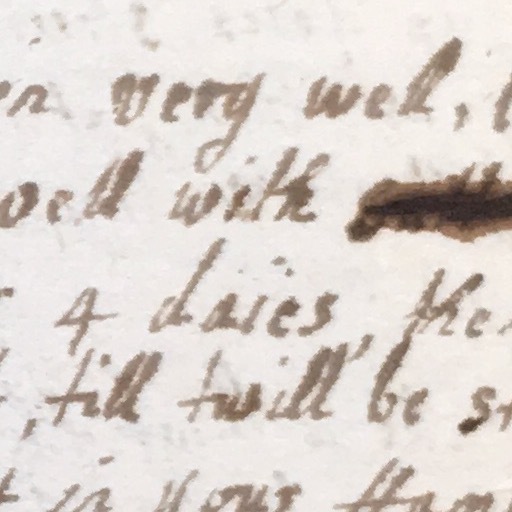 very well,
well with
4 daies the
, till twill be
in your